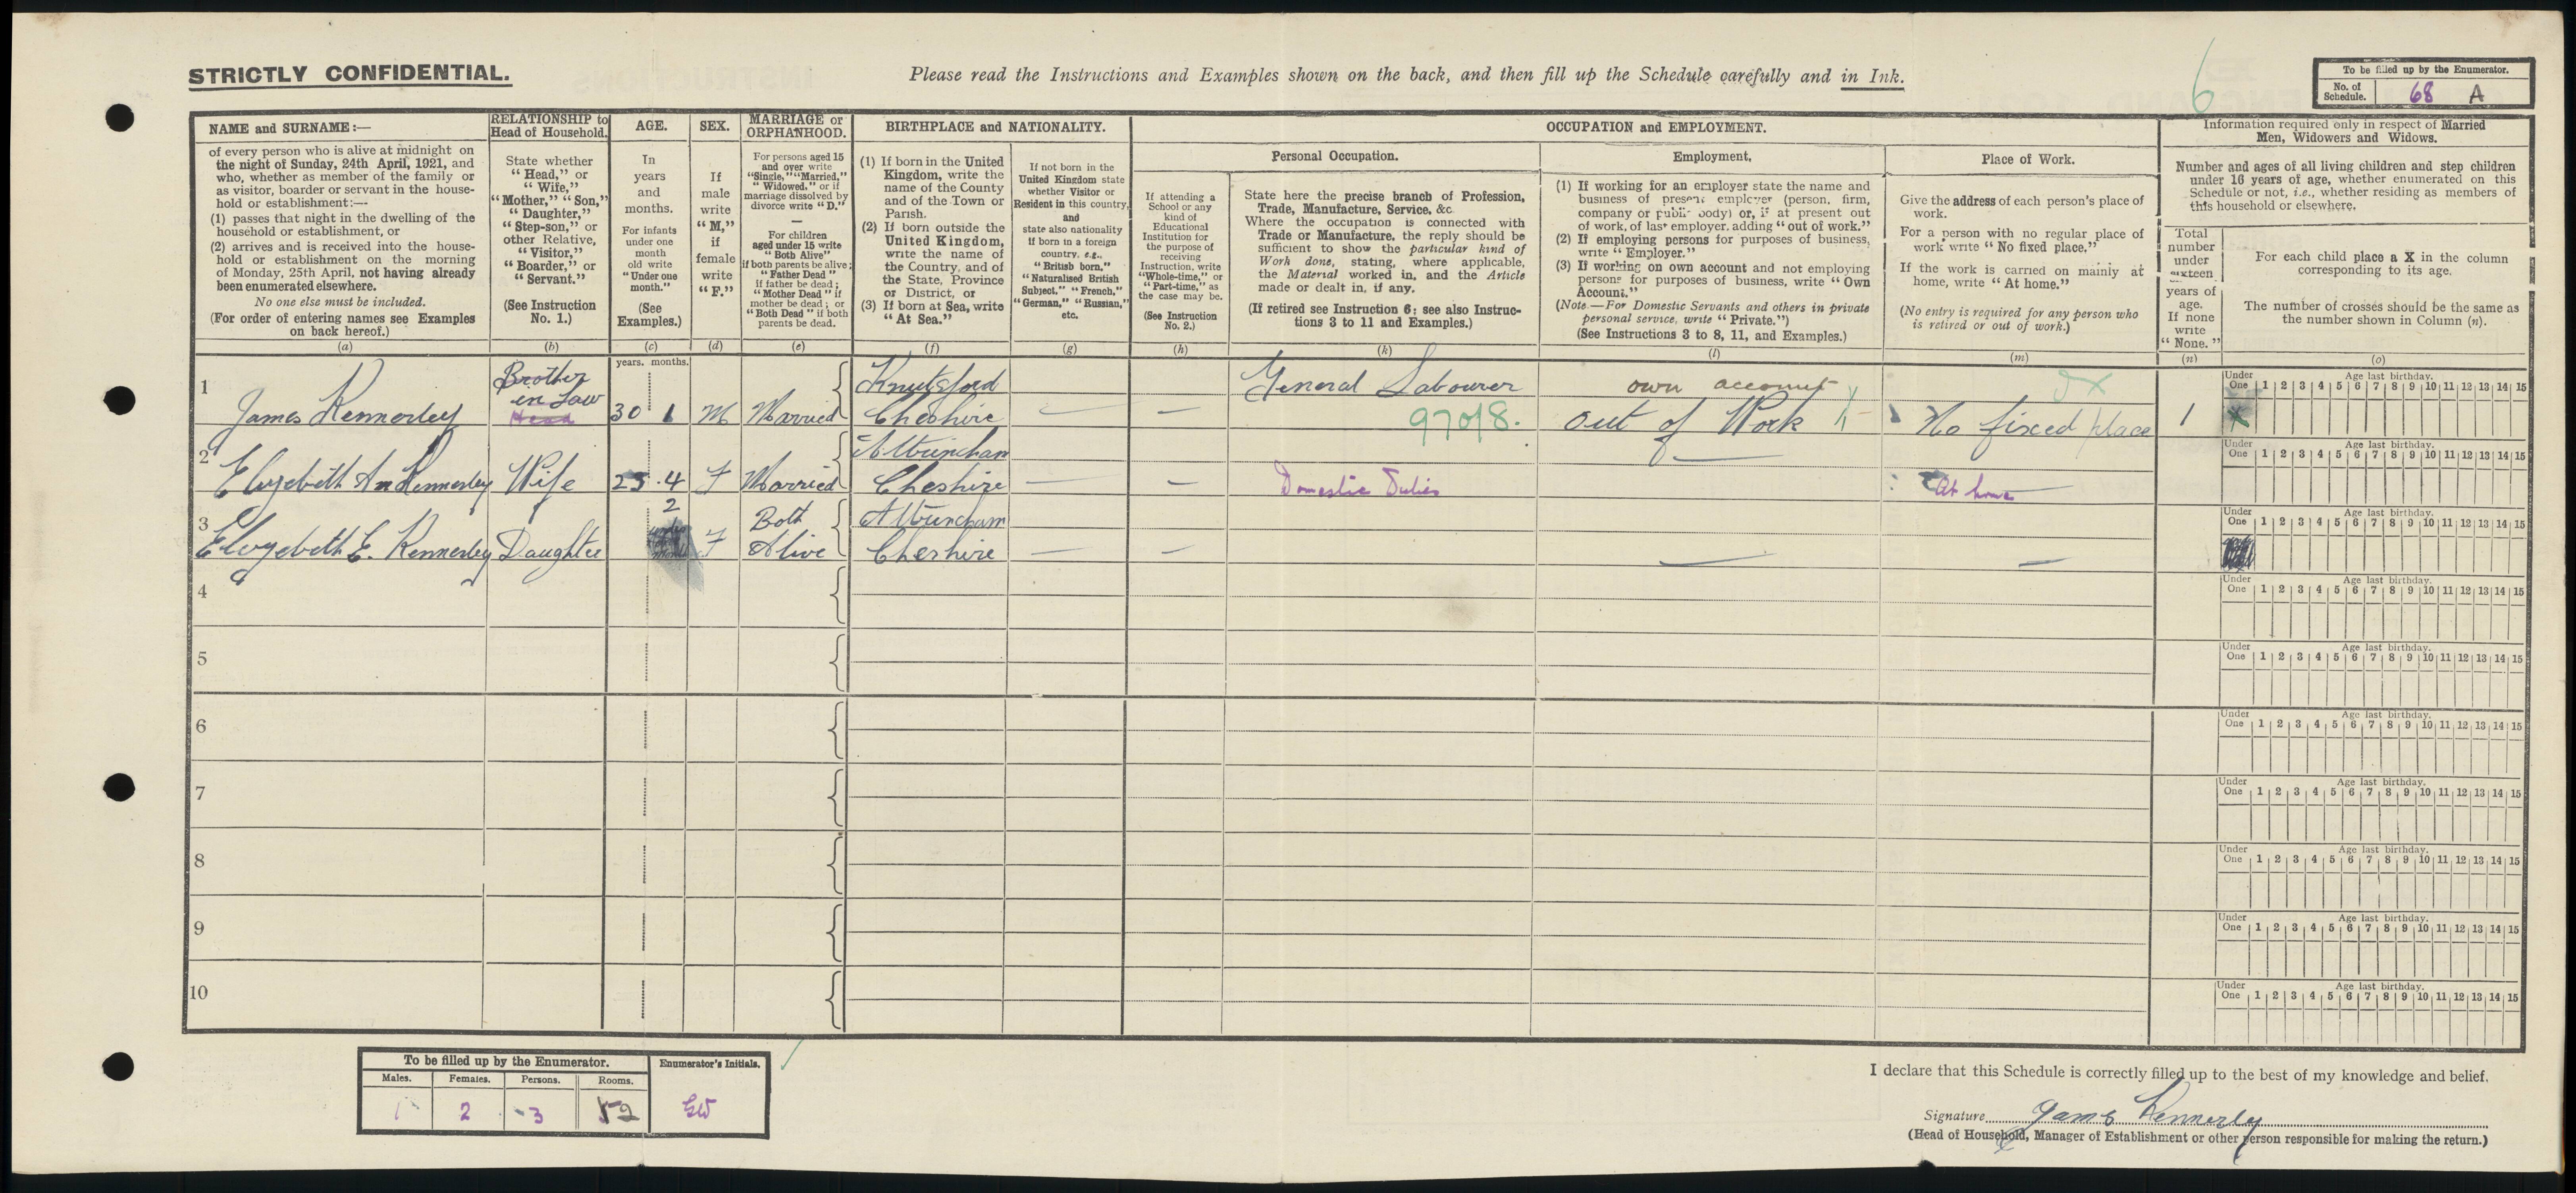 STRICTLY CONFIDENTIAL.
Please read the Instructions and Examples shown on the back, and then fill up the Schedule carefully and in Ink.
6
To be filled up by the Enumerator.
No. of Schedule. 68 A
NAME and SURNAME:—
of every person who is alive at midnight on
the night of Sunday, 24th April, 1921, and
who, whether as member of the family or
as visitor, boarder or servant in the house-
hold or establishment:—
(1) passes that night in the dwelling of the
household or establishment, or
(2) arrives and is received into the house-
hold or establishment on the morning
of Monday, 25th April, not having already
been enumerated elsewhere.
No one else must be included.
(For order of entering names see Examples
on back hereof.)
(a)
RELATIONSHIP to
Head of Household.
State whether
"Head," or
"Wife,"
"Mother," "Son,"
"Daughter,"
"Step-son," or
other Relative,
"Visitor,"
"Boarder," or
"Servant."
(See Instruction
No. 1.)
(b)
AGE.
In
years
and
months.
For infants
under one
month
old write
"Under one
month."
(See
Examples.)
(c)
SEX.
If
male
write
"M,"
if
female
write
"F."
(d)
MARRIAGE or
ORPHANHOOD.
For persons aged 15
and over write
"Single," "Married,"
"Widowed," or if
marriage dissolved by
divorce write "D."
—
For children
aged under 15 write
"Both Alive"
if both parents be alive;
"Father Dead"
if father be dead;
"Mother Dead" if
mother be dead; or
"Both Dead" if both
parents be dead.
(e)
BIRTHPLACE and NATIONALITY.
(1) If born in the United
Kingdom, write the
name of the County
and of the Town or
Parish.
(2) If born outside the
United Kingdom,
write the name of
the Country, and of
the State, Province
or District, or
(3) If born at Sea, write
"At Sea."
(f)
If not born in the
United Kingdom state
whether Visitor or
Resident in this country,
and
state also nationality
if born in a foreign
country, e.g.,
"British born,"
"Naturalised British
Subject," "French,"
"German," "Russian,"
etc.
(g)
OCCUPATION and EMPLOYMENT.
Personal Occupation.
If attending a
School or any
kind of
Educational
Institution for
the purpose of
receiving
Instruction, write
"Whole-time," or
"Part-time," as
the case may be.
(See Instruction
No. 2.)
(h)
State here the precise branch of Profession,
Trade, Manufacture, Service, &c.
Where the occupation is connected with
Trade or Manufacture, the reply should be
sufficient to show the particular kind of
Work done, stating, where applicable,
the Material worked in, and the Article
made or dealt in, if any.
(If retired see Instruction 6; see also Instruc-
tions 3 to 11 and Examples.)
(k)
Employment.
(1) If working for an employer state the name and
business of present employer (person, firm,
company or public body) or, if at present out
of work, of last employer, adding "out of work."
(2) If employing persons for purposes of business,
write "Employer."
(3) If working on own account and not employing
persons for purposes of business, write "Own
Account."
(Note.—For Domestic Servants and others in private
personal service, write "Private.")
(See Instructions 3 to 8, 11, and Examples.)
(l)
Place of Work.
Give the address of each person's place of
work.
For a person with no regular place of
work write "No fixed place."
If the work is carried on mainly at
home, write "At home."
(No entry is required for any person who
is retired or out of work.)
(m)
Information required only in respect of Married
Men, Widowers and Widows.
Number and ages of all living children and step children
under 16 years of age, whether enumerated on this
Schedule or not, i.e., whether residing as members of
this household or elsewhere.
Total
number
under
sixteen
years of
age.
If none
write
"None."
(n)
For each child place a X in the column
corresponding to its age.
The number of crosses should be the same as
the number shown in Column (n).
(o)
years. months.
1 James Kennerley Brother in Law Head 30 1 M Married Knutsford Cheshire — — General Labourer 970/8. own account out of Work No fixed place 1 X
Under One Age last birthday. 1 2 3 4 5 6 7 8 9 10 11 12 13 14 15
2 Elizebeth An Kennerley Wife 25 4 F Married Altrincham Cheshire — — Domestic Duties — At home
Under One Age last birthday. 1 2 3 4 5 6 7 8 9 10 11 12 13 14 15
3 Elizebeth E. Kennerley Daughter 2 F Both Alive Altrincham Cheshire — — — —
Under One Age last birthday. 1 2 3 4 5 6 7 8 9 10 11 12 13 14 15
4
Under One Age last birthday. 1 2 3 4 5 6 7 8 9 10 11 12 13 14 15
5
Under One Age last birthday. 1 2 3 4 5 6 7 8 9 10 11 12 13 14 15
6
Under One Age last birthday. 1 2 3 4 5 6 7 8 9 10 11 12 13 14 15
7
Under One Age last birthday. 1 2 3 4 5 6 7 8 9 10 11 12 13 14 15
8
Under One Age last birthday. 1 2 3 4 5 6 7 8 9 10 11 12 13 14 15
9
Under One Age last birthday. 1 2 3 4 5 6 7 8 9 10 11 12 13 14 15
10
Under One Age last birthday. 1 2 3 4 5 6 7 8 9 10 11 12 13 14 15
To be filled up by the Enumerator.
Males. Females. Persons. Rooms.
1 2 3 2
Enumerator's Initials.
EW
I declare that this Schedule is correctly filled up to the best of my knowledge and belief.
Signature James Kennerley
(Head of Household, Manager of Establishment or other person responsible for making the return.)